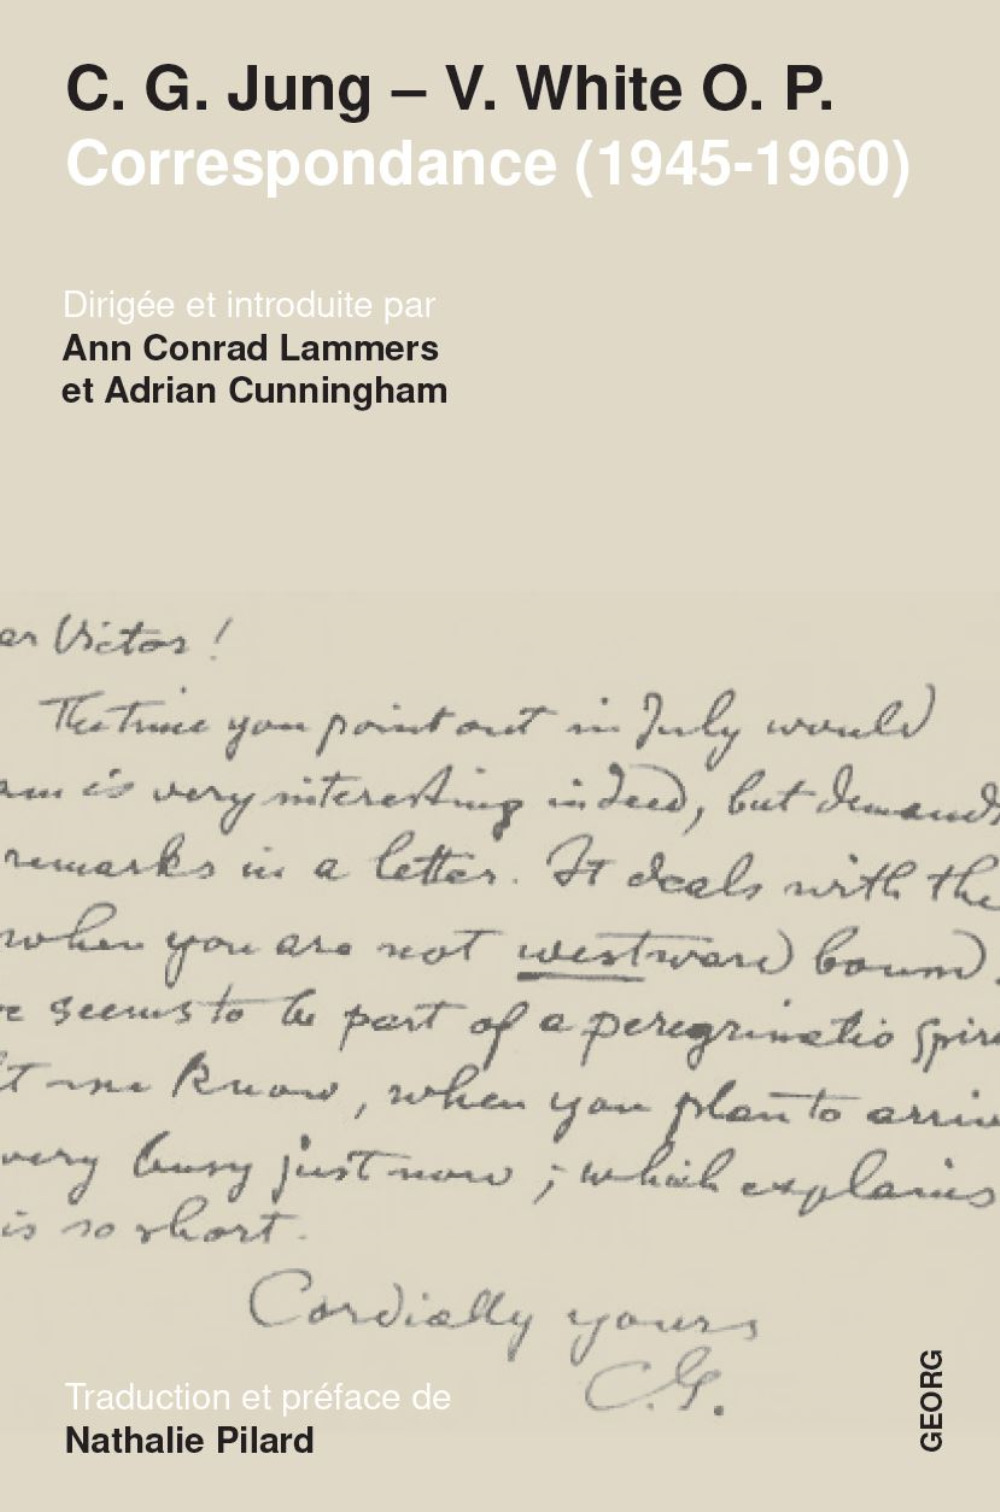 C. G. Jung – V. White O. P.
Correspondance (1945-1960)
Dirigée et introduite par
Ann Conrad Lammers
et Adrian Cunningham
er Victor !
The time you point out in July would
am is very interesting indeed, but demands
remarks in a letter. It deals with the
when you are not westward bound.
e seems to be part of a peregrinatio spiri
t me know, when you plan to arriv
very busy just now ; which explains
is so short.
Cordially yours
C.G.
Traduction et préface de
Nathalie Pilard
GEORG